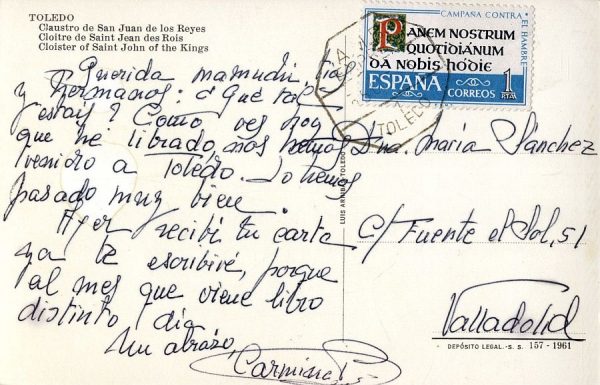 TOLEDO
Claustro de San Juan de los Reyes
Cloître de Saint Jean des Rois
Cloister of Saint John of the Kings
CAMPAÑA CONTRA EL HAMBRE
PANEM NOSTRUM
QUOTIDIÁNUM
DA NOBIS HÓDIE
ESPAÑA CORREOS 1 PTA
TOLEDO
Querida mamudu, tía
y hermanos: ¿Qué tal
estáis? Como ves hoy
que he librado, nos hemos
venido a Toledo. Lo hemos
pasado muy bien.
Ayer recibí tu carta
ya te escribiré, porque
al mes que viene libro
distinto día
Un abrazo,
LUIS ARRIBAS TOLEDO
Dna. María Sánchez
C/ Fuente el Sol, 51
Valladolid
DEPÓSITO LEGAL.-S. S. 157-1961